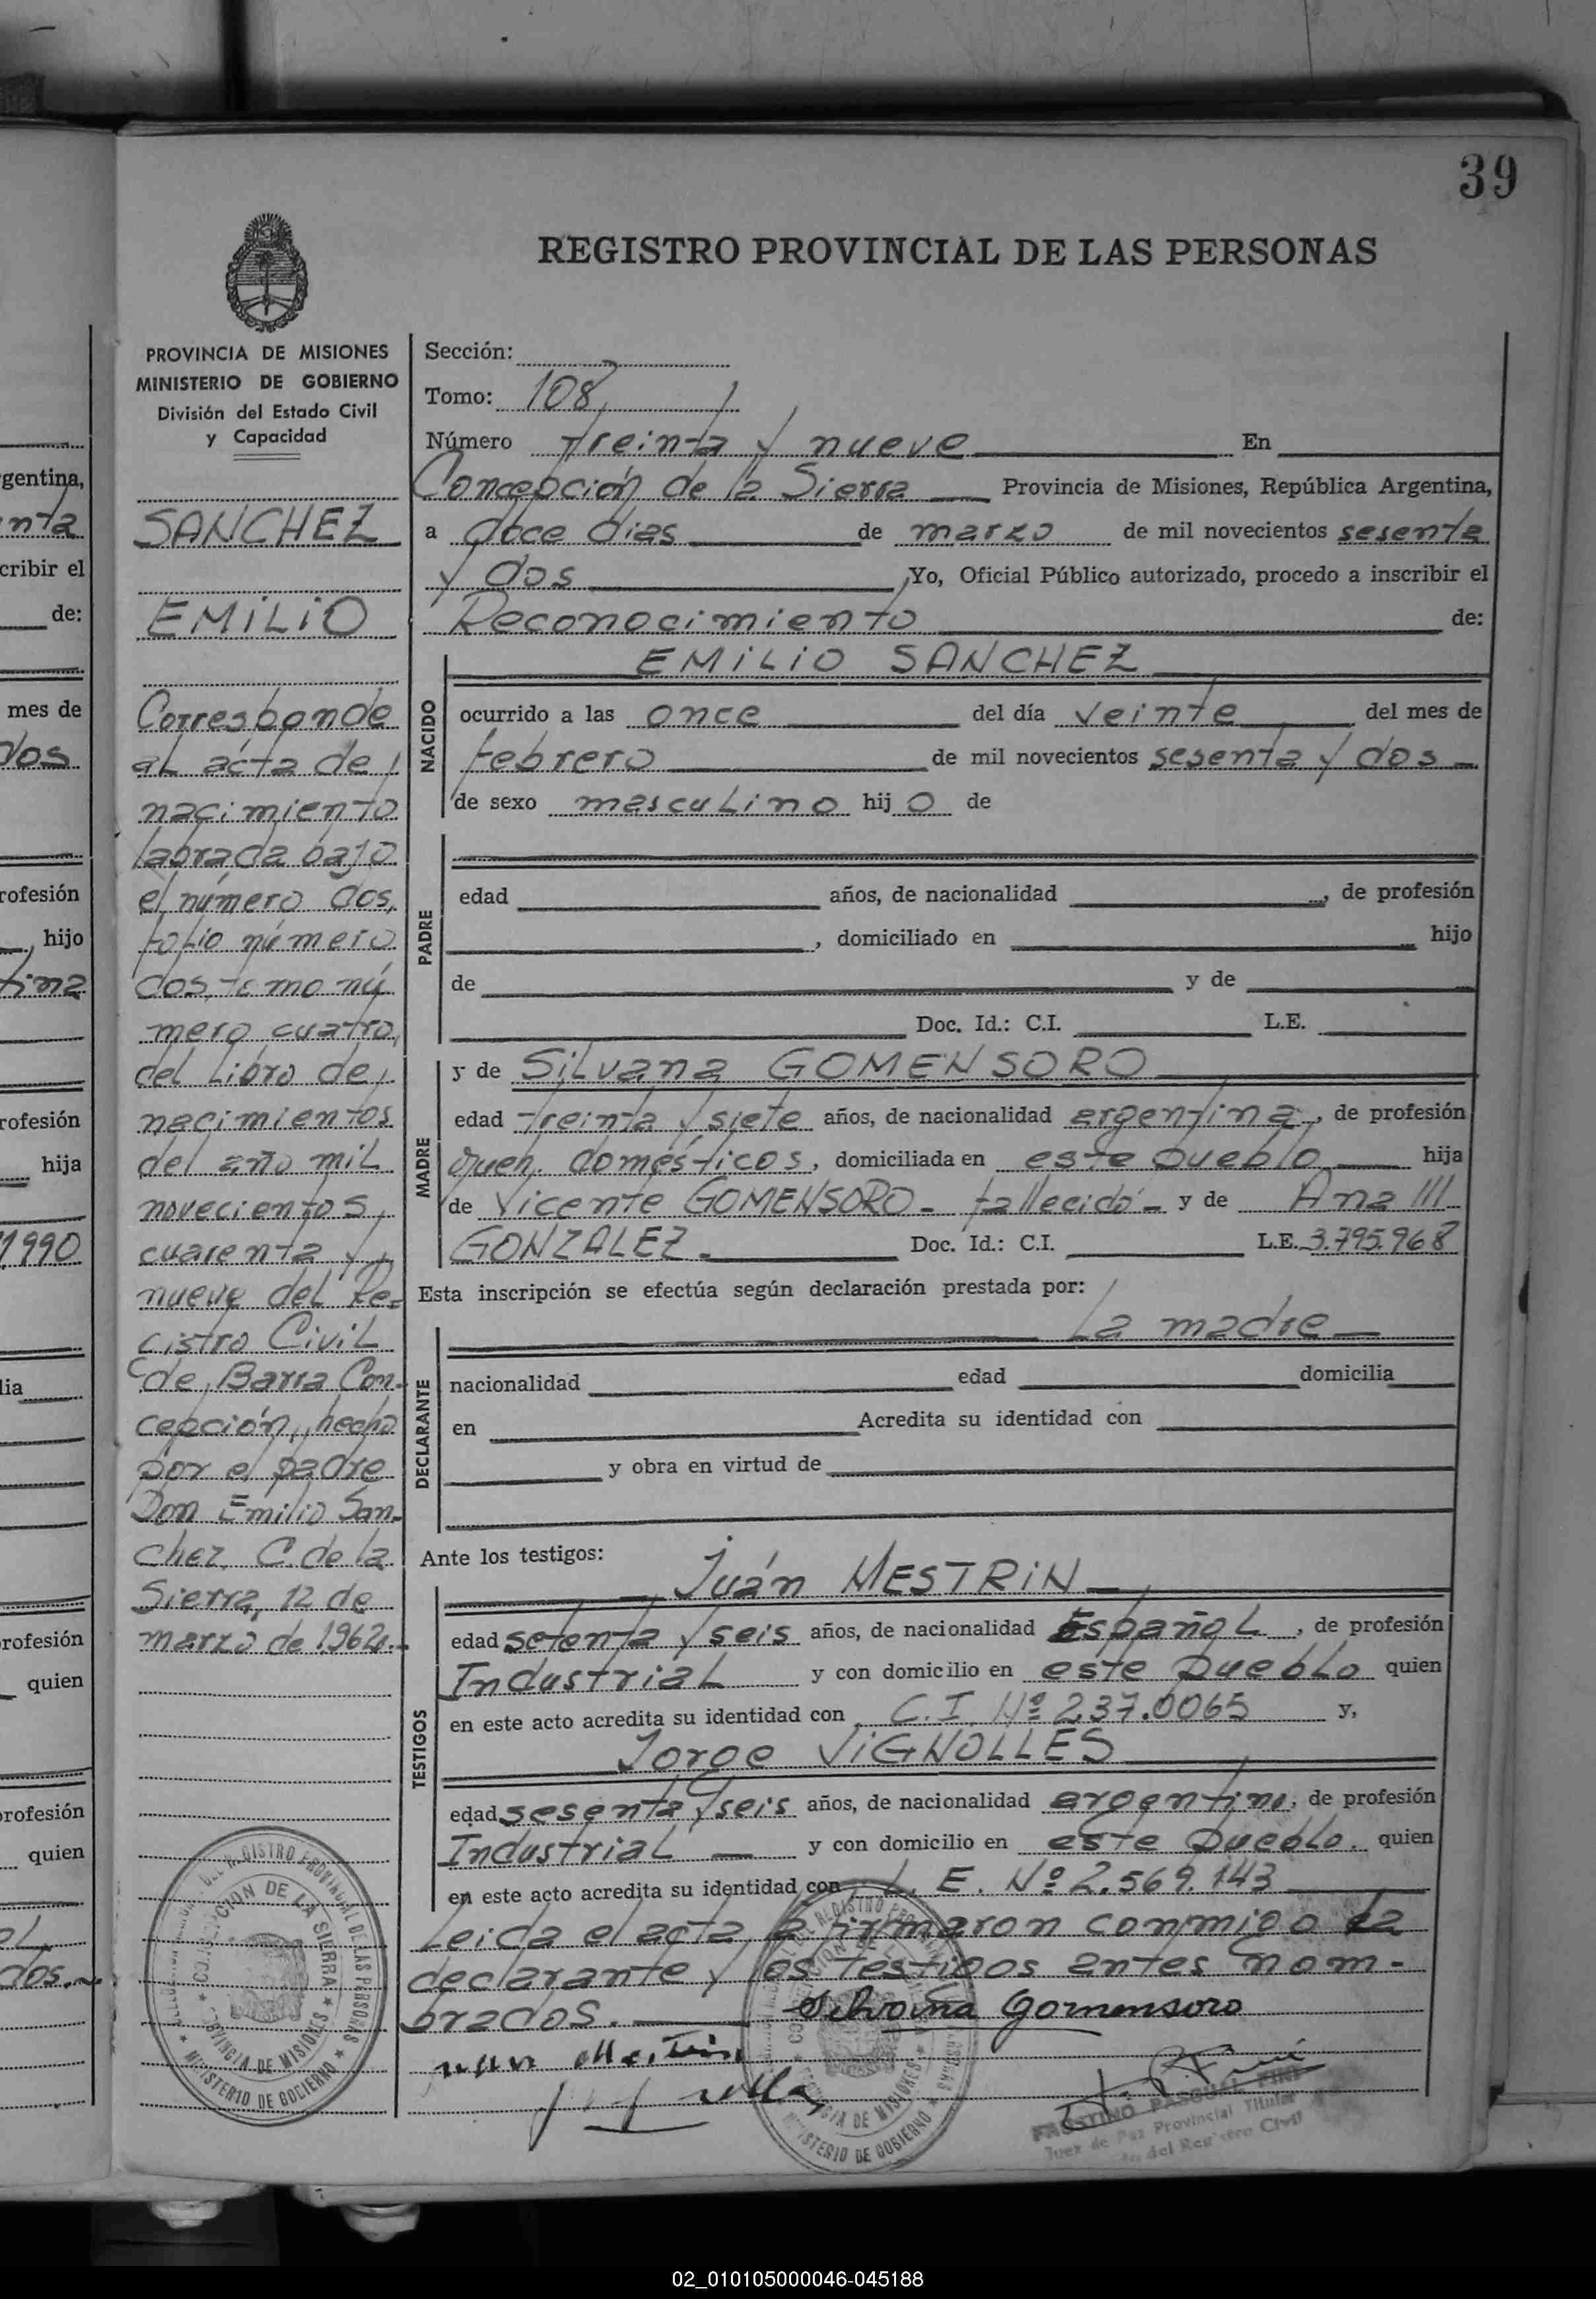 39
REGISTRO PROVINCIAL DE LAS PERSONAS
PROVINCIA DE MISIONES
MINISTERIO DE GOBIERNO
División del Estado Civil
y Capacidad
SANCHEZ
EMILIO
Corresponde
al acta de
nacimiento
labrada bajo
el número dos,
folio número
dos, tomo nú
mero cuatro,
del Libro de
nacimientos
del año mil
novecientos
cuarenta y
nueve del Re-
gistro Civil
de Barra Con-
cepción, hecho
por el padre
Don Emilio San-
chez. C. de la
Sierra, 12 de
marzo de 1962.-
Sección:
Tomo: 108
Número treinta y nueve En
Concepción de la Sierra Provincia de Misiones, República Argentina,
a doce días de marzo de mil novecientos sesenta
y dos ,Yo, Oficial Público autorizado, procedo a inscribir el
Reconocimiento de:
NACIDO
EMILIO SANCHEZ
ocurrido a las once del día veinte del mes de
febrero de mil novecientos sesenta y dos
de sexo masculino hijo de
PADRE
edad años, de nacionalidad , de profesión
, domiciliado en hijo
de y de
Doc. Id.: C.I. L.E.
MADRE
y de Silvana GOMENSORO
edad treinta y siete años, de nacionalidad argentina, de profesión
queh. domésticos, domiciliada en este pueblo hija
de Vicente GOMENSORO - fallecido - y de Ana
GONZALEZ. Doc. Id.: C.I. L.E. 3.795.968
Esta inscripción se efectúa según declaración prestada por:
DECLARANTE
La madre
nacionalidad edad domicilia
en Acredita su identidad con
y obra en virtud de
Ante los testigos:
TESTIGOS
Juán MESTRIN
edad setenta y seis años, de nacionalidad Español, de profesión
Industrial y con domicilio en este pueblo quien
en este acto acredita su identidad con C.I. Nº 2.37.0065 y,
Jorge VIGNOLLES
edad sesenta y seis años, de nacionalidad argentino, de profesión
Industrial y con domicilio en este pueblo. quien
en este acto acredita su identidad con L. E. Nº 2.569.143
Leida el acta, la firmaron conmigo la
declarante y los testigos antes nom-
brados.
Silvana Gomensoro
FAUSTINO PASCUAL FINI
Juez de Paz Provincial Titular
del Registro Civil
CONCEPCION DE LA SIERRA
PROVINCIA DE MISIONES
MINISTERIO DE GOBIERNO
gentina,
nta
cribir el
de:
mes de
dos
rofesión
hijo
tina
rofesión
hija
1990
lia
rofesión
quien
profesión
quien
dos.
02_010105000046-045188